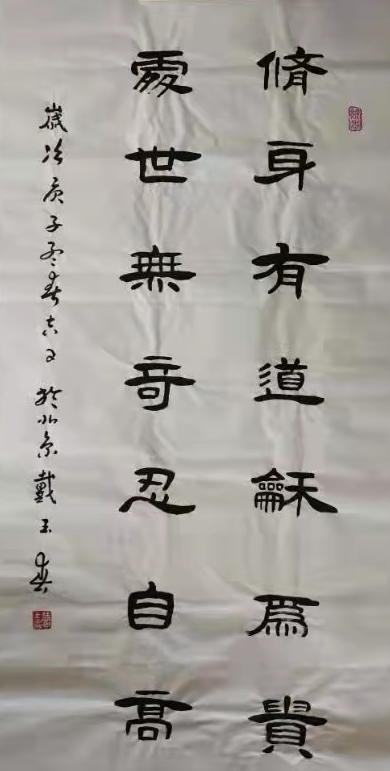 脩身有道龢爲貴
處世無奇忍自高
歲次庚子春吉日於北京戴玉